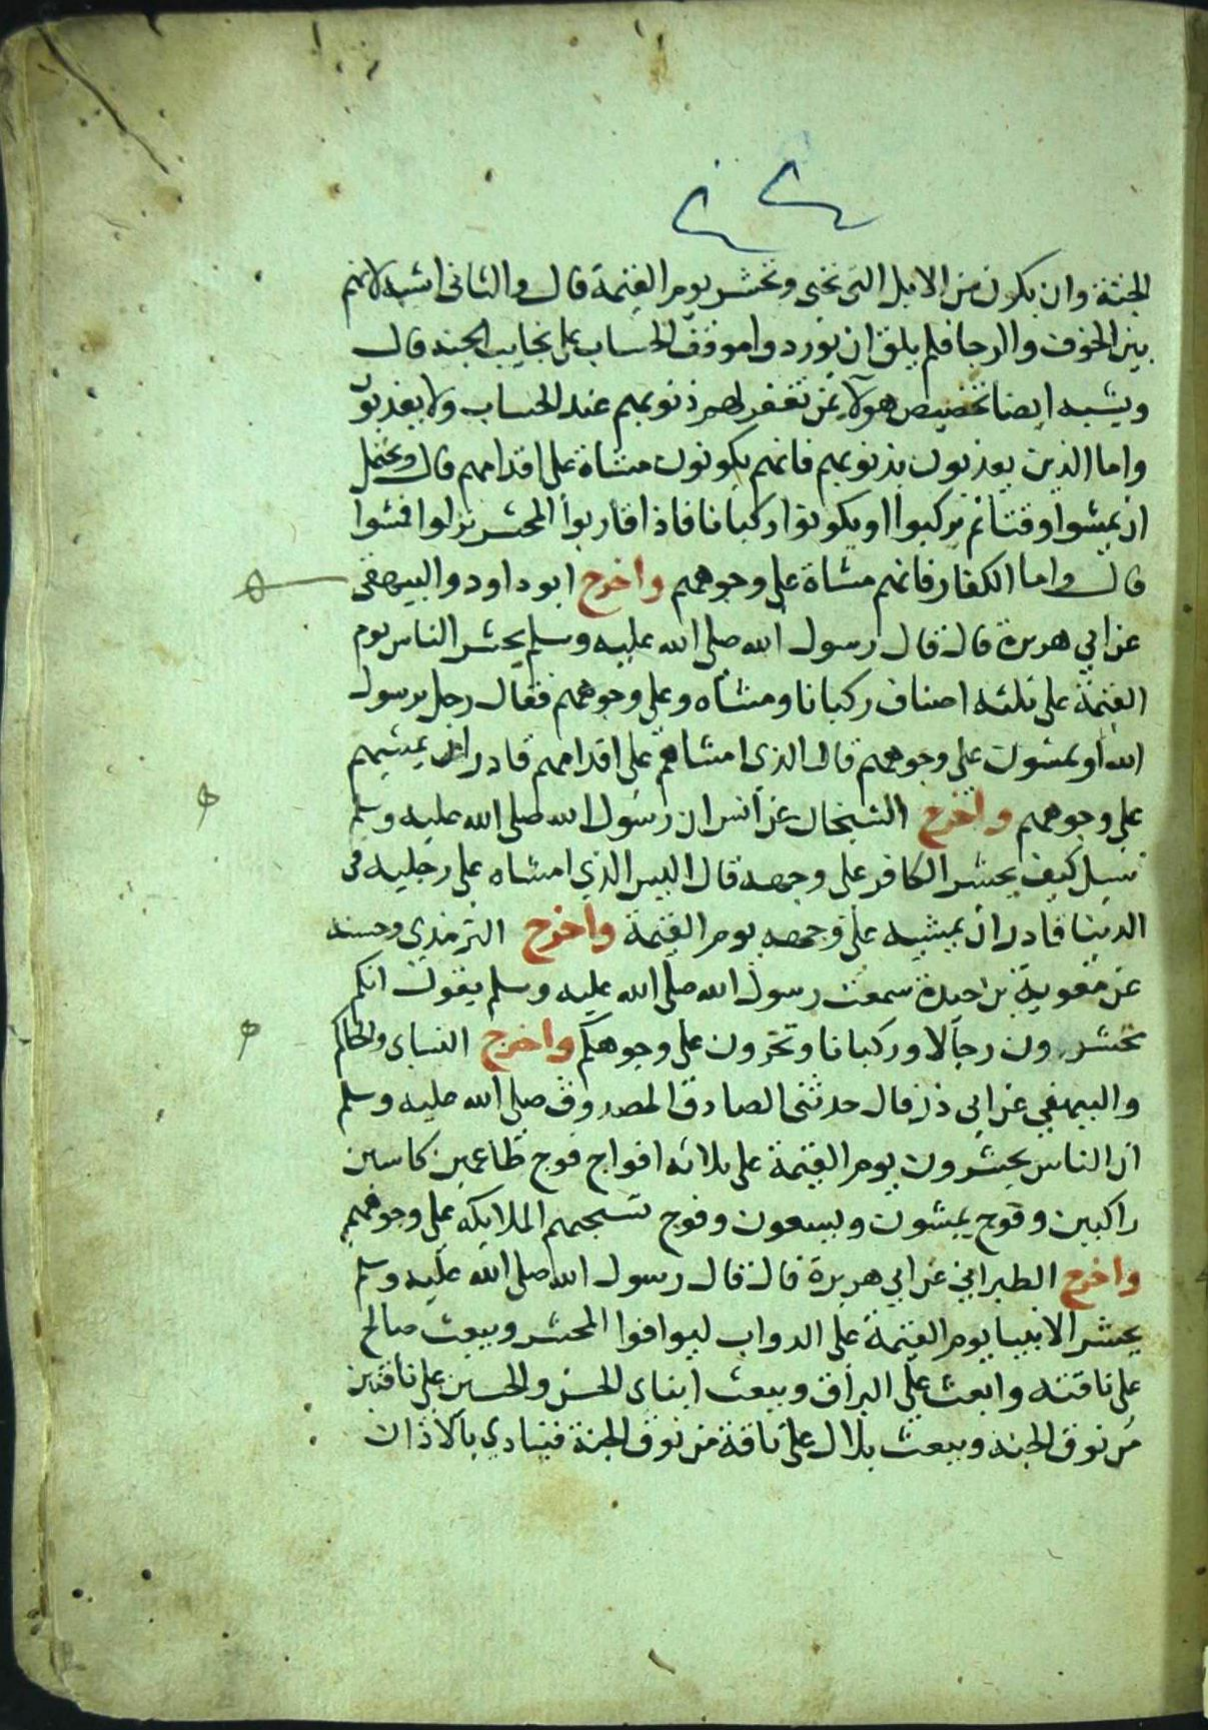 الجنة وان يكون من الابل التى تحيى وتحشر يوم القيمة قال والثانى اشبه لانهم
بين الخوف والرجا فلم يلق ان يوردوا موقف الحساب على نجايب الجنه قال
ويشبه ايضا تخصيص هولاء بمن تغفر لهم ذنوبهم عند الحساب ولا يعذبون
واما الذين يعذبون بذنوبهم فانهم يكونون مشاة على اقدامهم قال ويحتمل
ان يمشوا وقتا ثم يركبوا او يكونوا ركبانا فاذا قاربوا المحشر نزلوا فمشوا
قال واما الكفار فانهم مشاة على وجوههم واخرج ابو داود والبيهقى
عن ابي هريرة قال قال رسول الله صلى الله عليه وسلم يحشر الناس يوم
القيمة على ثلثه اصناف ركبانا ومشاه وعلى وجوههم فقال رجل يرسول
الله او يمشون على وجوههم قال الذى امشاهم على اقدامهم قادر ان يمشيهم
على وجوههم واخرج الشيخان عن انس ان رسول الله صلى الله عليه وسلم
سيل كيف يحشر الكافر على وجهه قال اليس الذي امشاه على رجليه فى
الدنيا قادر ان يمشيه على وجهه يوم القيمة واخرج الترمذي وحسنه
عن معوية بن حيدة سمعت رسول الله صلى الله عليه وسلم يقول انكم
تحشرون رجالا وركبانا وتجرون على وجوهكم واخرج النساى والحاكم
والبيهقي عن ابى ذر قال حدثنى الصادق المصدوق صلى الله عليه وسلم
ان الناس يحشرون يوم القيمة على ثلاثه افواج فوج طاعمين كاسين
راكبين وفوج يمشون ويسعون وفوج تسحبهم الملايكه على وجوههم
واخرج الطبراني عن ابي هريرة قال قال رسول الله صلى الله عليه وسلم
يحشر الانبيا يوم القيمة على الدواب ليوافوا المحشر ويبعث صالح
على ناقته وابعث على البراق ويبعث ابناى الحسن والحسين على ناقتين
من نوق الجنه ويبعث بلال على ناقة من نوق الجنة فينادي بالاذان